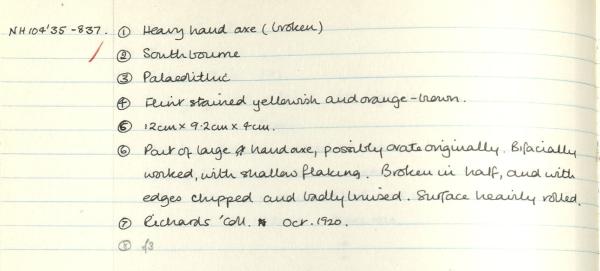 NH104'35-837. ① Heavy hand axe (broken)
② Southbourne
③ Palaeolithic
④ Flint stained yellowish and orange-brown.
⑤ 12cm x 9.2cm x 4cm.
⑥ Part of large hand axe, possibly ovate originally. Bifacially
worked, with shallow flaking. Broken in half, and with
edges chipped and badly bruised. Surface heavily rolled.
⑦ Richards 'Coll. Oct. 1920.
⑧ £3